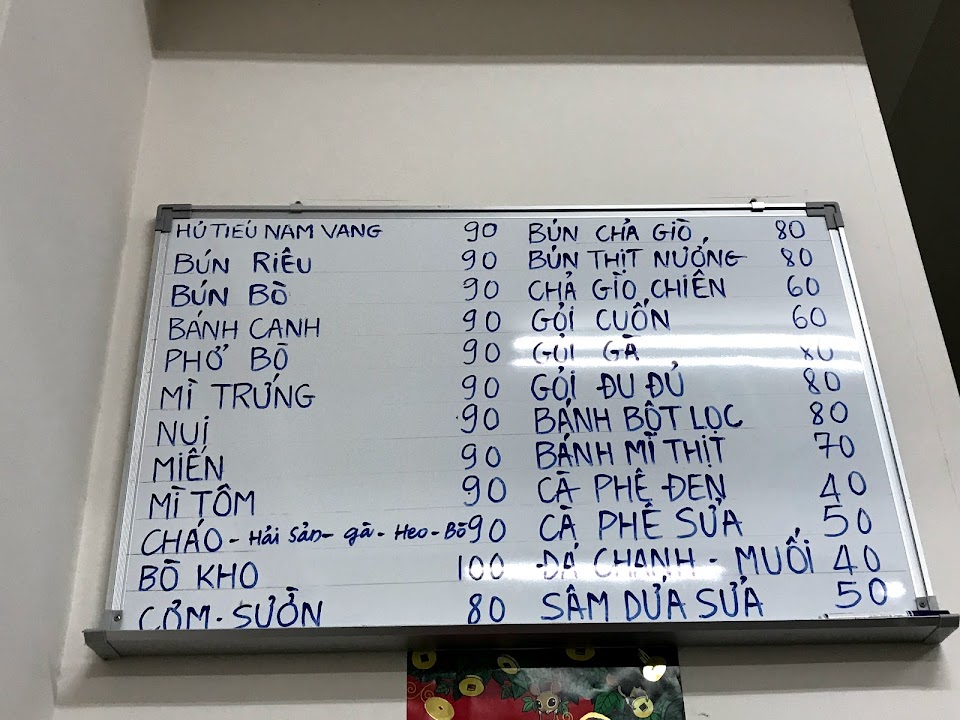 HỦ TIẾU NAM VANG 90
BÚN RIÊU 90
BÚN BÒ 90
BÁNH CANH 90
PHỞ BÒ 90
MÌ TRỨNG 90
NUI 90
MIẾN 90
MÌ TÔM 90
CHÁO - Hải Sản - gà - Heo - Bò 90
BÒ KHO 100
CƠM - SƯỜN 80
BÚN CHẢ GIÒ 80
BÚN THỊT NƯỚNG 80
CHẢ GIÒ CHIÊN 60
GỎI CUỐN 60
GỎI GÀ 80
GỎI ĐU ĐỦ 80
BÁNH BỘT LỌC 80
BÁNH MÌ THỊT 70
CÀ PHÊ ĐEN 40
CÀ PHÊ SỬA 50
ĐÁ CHANH - MUỐI 40
SÂM DỨA SỬA 50